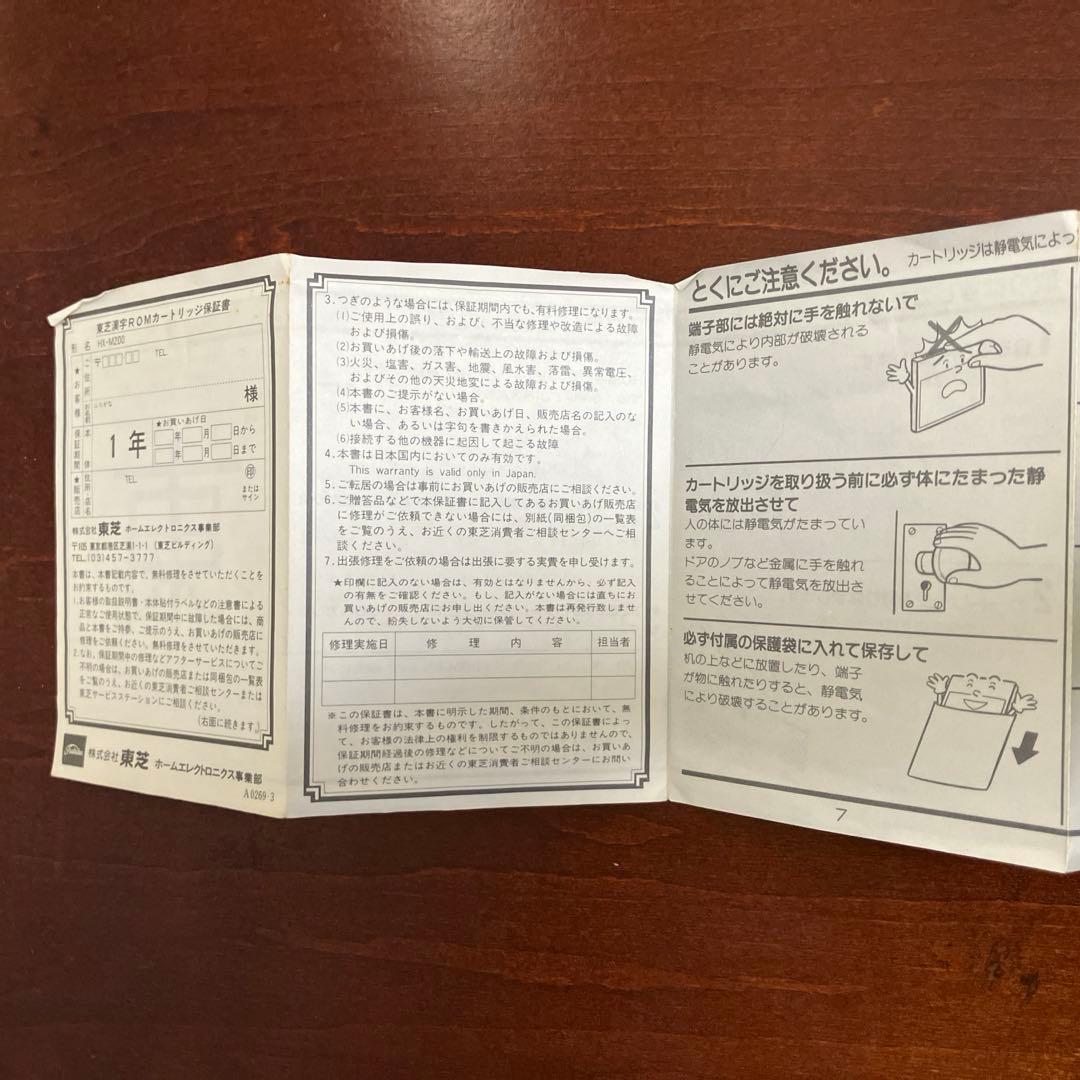 東芝漢字ROMカートリッジ保証書
形名 HX-M200
★お客様
ご住所
〒
TEL
ふりがな
お名前
様
保証期間
本体
1年
★お買いあげ日
年 月 日から
年 月 日まで
★販売店
住所・店名
TEL
印
または
サイン
株式会社 東芝 ホームエレクトロニクス事業部
〒105 東京都港区芝浦1-1-1 (東芝ビルディング)
TEL.(03)457-3777
本書は、本書記載内容で、無料修理をさせていただくことを
お約束するものです。
1.お客様の取扱説明書・本体貼付ラベルなどの注意書による
正常なご使用状態で、保証期間中に故障した場合には、商
品と本書をご持参、ご提示のうえ、お買いあげの販売店に
修理をご依頼ください。無料修理をさせていただきます。
2.なお、保証期間中の修理などアフターサービスについてご
不明の場合は、お買いあげの販売店または同梱包の一覧表
をご覧のうえ、お近くの東芝消費者ご相談センターまたは
東芝サービスステーションにご相談ください。
(右面に続きます。)
株式会社 東芝 ホームエレクトロニクス事業部
A0269-3
3.つぎのような場合には、保証期間内でも、有料修理になります。
(1)ご使用上の誤り、および、不当な修理や改造による故障
および損傷。
(2)お買いあげ後の落下や輸送上の故障および損傷。
(3)火災、塩害、ガス害、地震、風水害、落雷、異常電圧、
およびその他の天災地変による故障および損傷。
(4)本書のご提示がない場合。
(5)本書に、お客様名、お買いあげ日、販売店名の記入のな
い場合、あるいは字句を書きかえられた場合。
(6)接続する他の機器に起因して起こる故障
4.本書は日本国内においてのみ有効です。
This warranty is valid only in Japan.
5.ご転居の場合は事前にお買いあげの販売店にご相談ください。
6.ご贈答品などで本保証書に記入してあるお買いあげ販売店
に修理がご依頼できない場合には、別紙(同梱包)の一覧表
をご覧のうえ、お近くの東芝消費者ご相談センターへご相
談ください。
7.出張修理をご依頼の場合は出張に要する実費を申し受けます。
★印欄に記入のない場合は、有効とはなりませんから、必ず記入
の有無をご確認ください。もし、記入がない場合には直ちにお
買いあげの販売店にお申し出ください。本書は再発行致しませ
んので、紛失しないよう大切に保管してください。
修理実施日 修理内容 担当者
※この保証書は、本書に明示した期間、条件のもとにおいて、無
料修理をお約束するものです。したがって、この保証書によっ
て、お客様の法律上の権利を制限するものではありませんので、
保証期間経過後の修理などについてご不明の場合は、お買いあ
げの販売店またはお近くの東芝消費者ご相談センターにお問い
合わせください。
とくにご注意ください。 カートリッジは静電気によっ
端子部には絶対に手を触れないで
静電気により内部が破壊される
ことがあります。
カートリッジを取り扱う前に必ず体にたまった静
電気を放出させて
人の体には静電気がたまってい
ます。
ドアのノブなど金属に手を触れ
ることによって静電気を放出さ
せてください。
必ず付属の保護袋に入れて保存して
机の上などに放置したり、端子
が物に触れたりすると、静電気
により破壊することがあります。
7